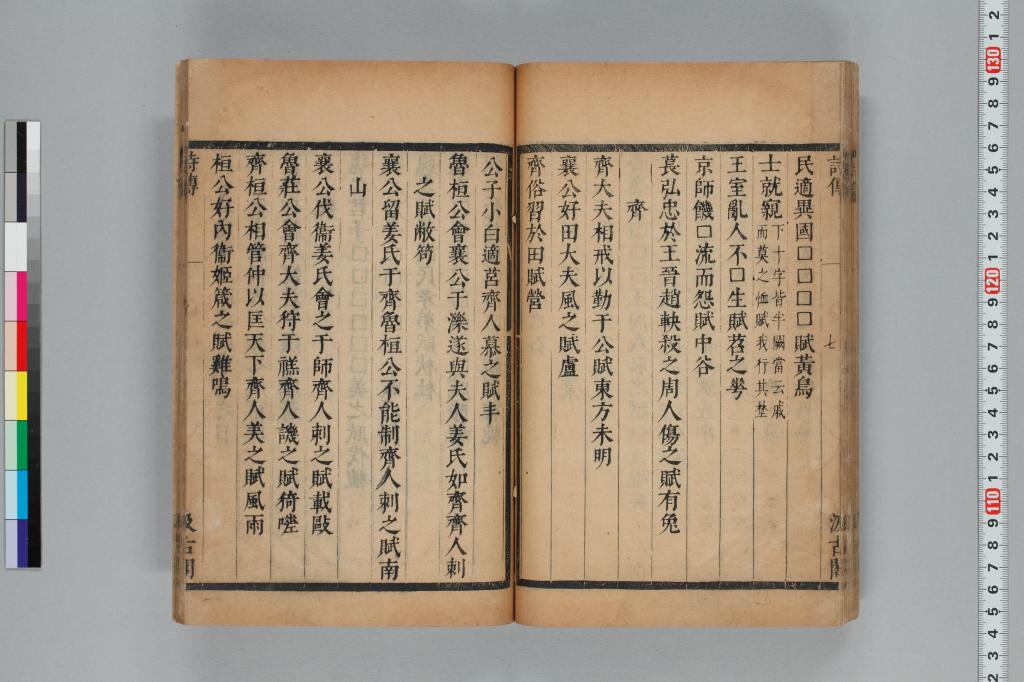 詩傳
七
汲古閣
民適異國口口口口賦黃鳥
士就親下十字皆半闕當云戚
而莫之恤賦我行其埜
王室亂人不口生賦苕之雩
京師饑口流而怨賦中谷
萇弘忠於王晉趙軮殺之周人傷之賦有兔
齊
齊大夫相戒以勤于公賦東方未明
襄公好田大夫風之賦盧
齊俗習於田賦營
公子小白適莒齊人慕之賦丰
魯桓公會襄公于濼遂與夫人姜氏如齊齊人刺
之賦敝笱
襄公留姜氏于齊魯桓公不能制齊人刺之賦南
山
襄公伐衞姜氏會之于師齊人刺之賦載敺
魯莊公會齊大夫狩于禚齊人譏之賦猗嗟
齊桓公相管仲以匡天下齊人美之賦風雨
桓公好內衞姬箴之賦雞鳴
詩傳
汲古閣
2
1
130
9
8
7
6
5
4
3
2
1
120
9
8
7
6
5
4
3
2
1
110
9
8
7
6
5
4
3
2